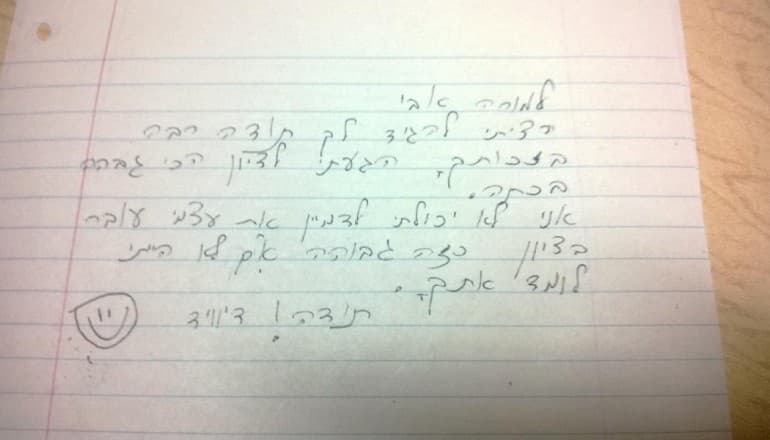 למורה אבי
רציתי להגיד לך תודה רבה
בזכותך, הגעתי לציון הכי גבוה
בכתה.
אני לא יכולתי לדמיין את עצמי עובר
בציון כזה גבוהה אם לא הייתי
לומד אתך.
תודה! דיוויד